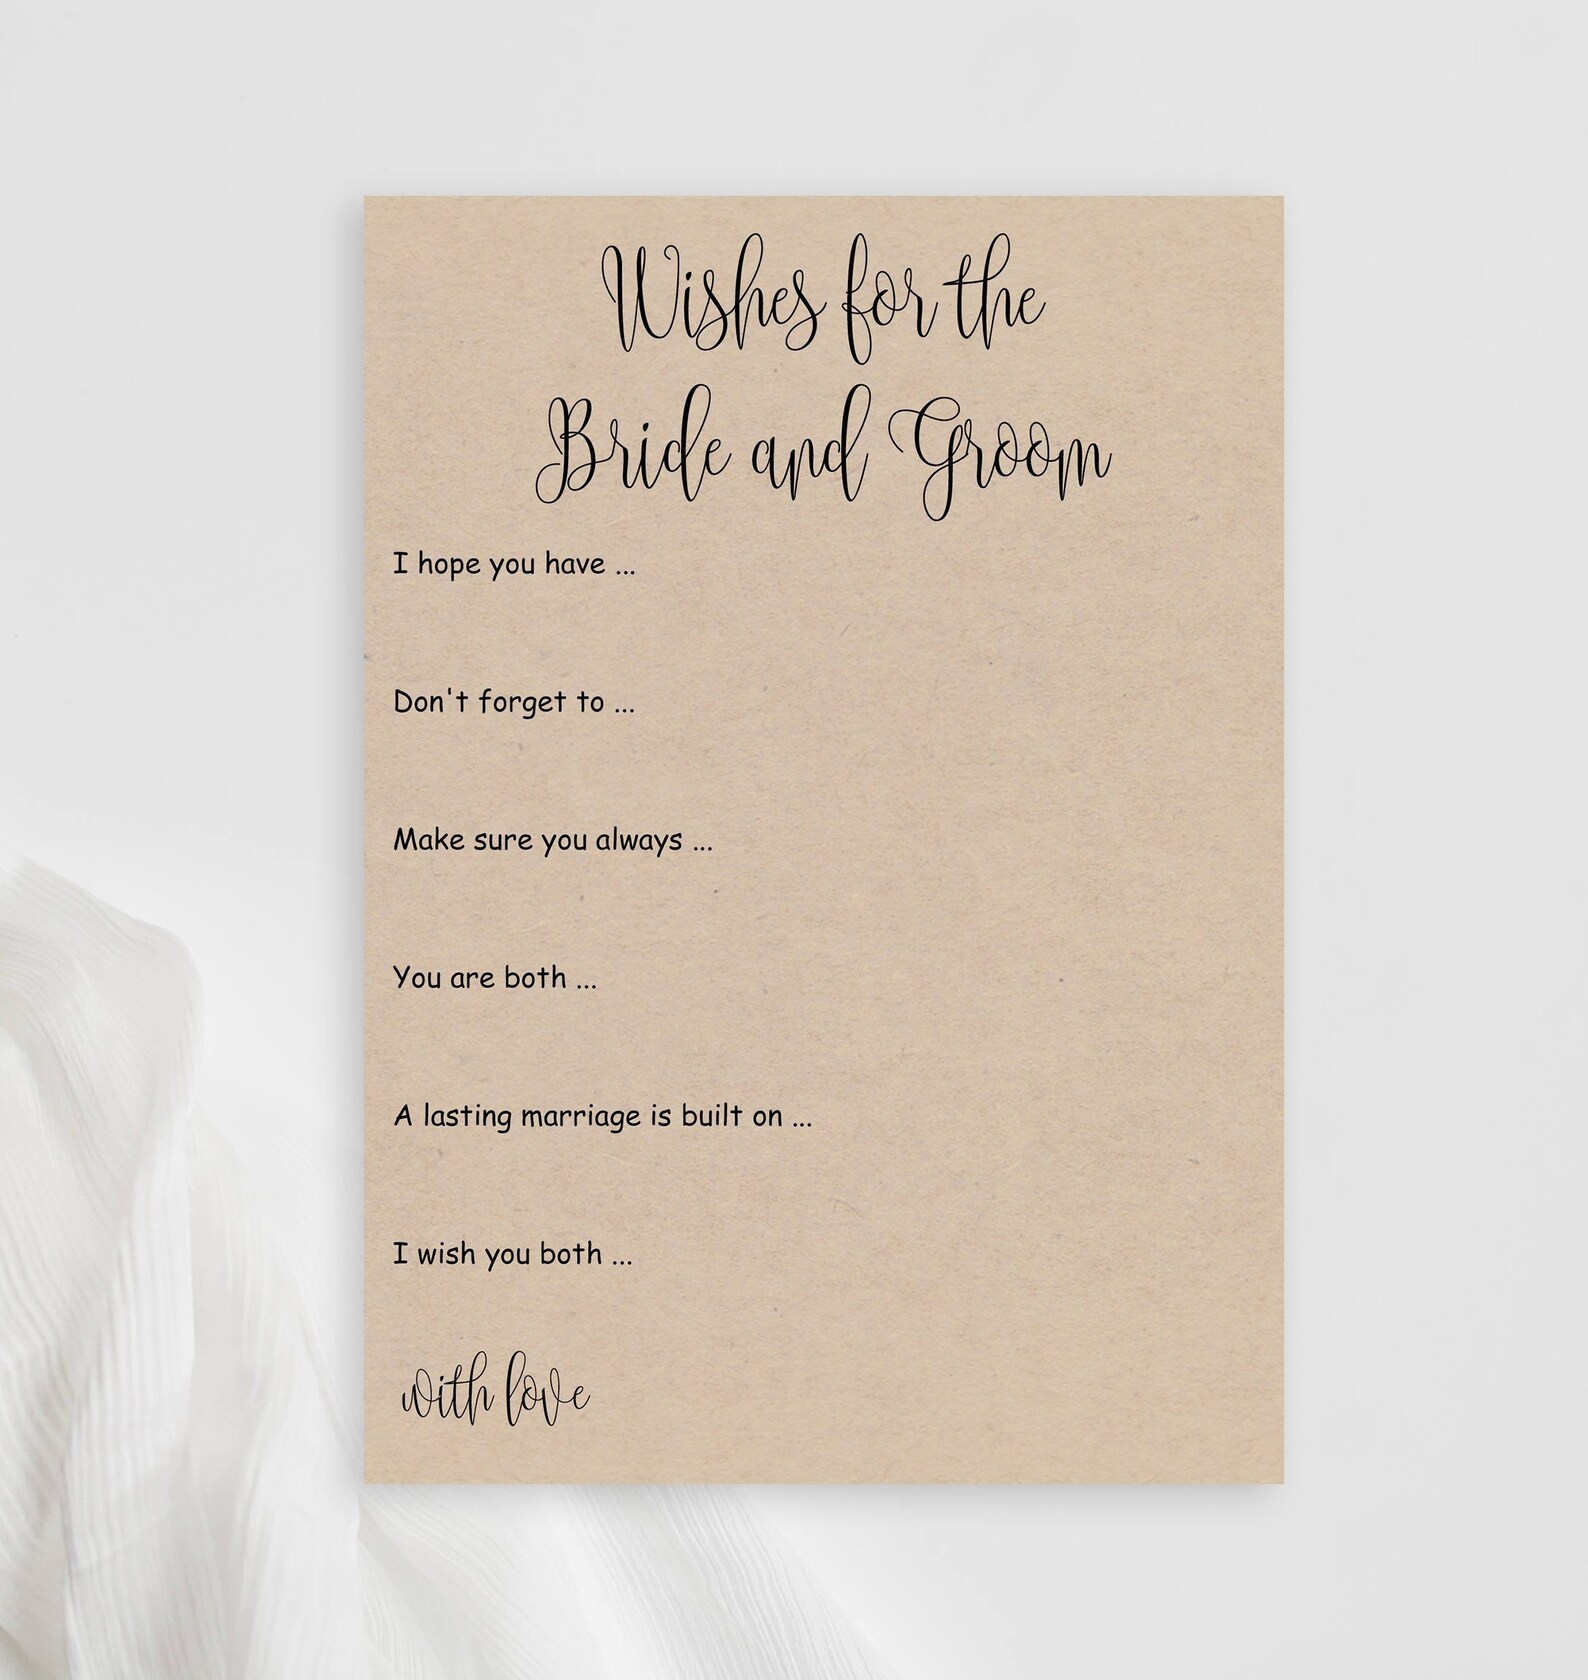 Wishes for the
Bride and Groom
I hope you have ...
Don't forget to ...
Make sure you always ...
You are both ...
A lasting marriage is built on ...
I wish you both ...
with love